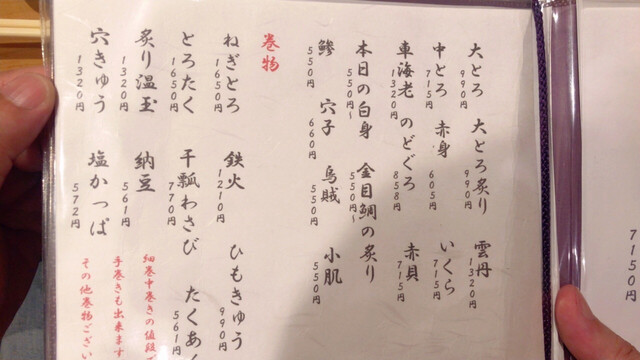 大とろ 990円 大とろ炙り 990円 雲丹 1320円
中とろ 715円 赤身 605円 いくら 715円
車海老 1320円 のどぐろ 858円 赤貝 715円
本日の白身 550円〜 金目鯛の炙り 550円〜
鰺 550円 穴子 660円 烏賊 550円 小肌 550円
巻物
ねぎとろ 1650円 鉄火 1210円 ひもきゅう 990円
とろたく 1650円 干瓢わさび 770円 たくあ 561円
炙り温玉 1320円 納豆 561円
穴きゅう 1320円 塩かっぱ 572円
細巻中巻きの値段で
手巻きも出来ます
その他巻物ござい
7150円